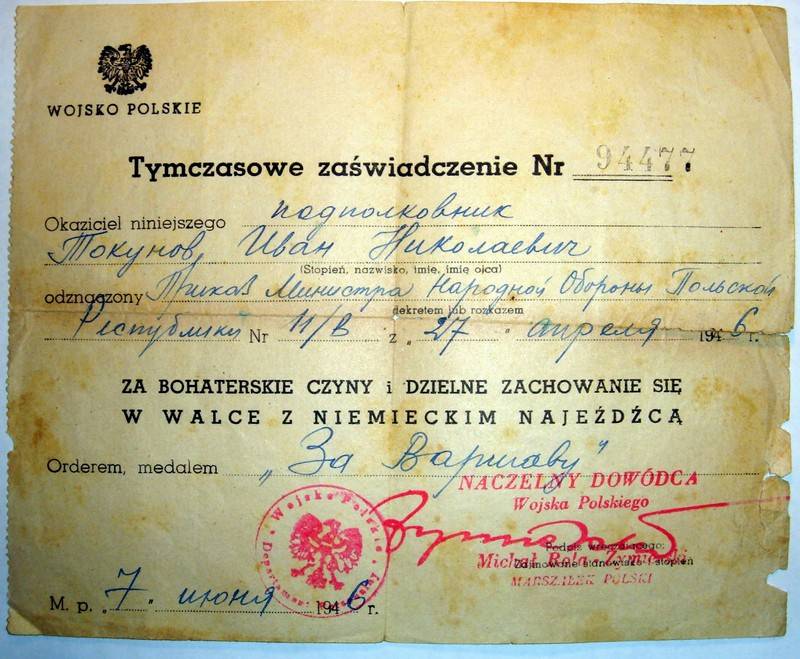 WOJSKO POLSKIE
Tymczasowe zaświadczenie Nr 94477
Okaziciel niniejszego подполковник
Токунов, Иван Николаевич
(Stopień, nazwisko, imię, imię ojca)
odznaczony Приказ Министра Народной Обороны Польской
dekretem lub rozkazem
Республики Nr 11/В z „27" апреля 1946 г.
ZA BOHATERSKIE CZYNY i DZIELNE ZACHOWANIE SIĘ
W WALCE Z NIEMIECKIM NAJEŹDŹCĄ
Orderem, medalem „За Варшаву"
NACZELNY DOWÓDCA
Wojska Polskiego
Podpis wręczającego;
Michał Rola-Żymierski
Zajmowane stanowisko i stopień
MARSZAŁEK POLSKI
Wojsko Polskie
M. p. „7" июня 1946 г.